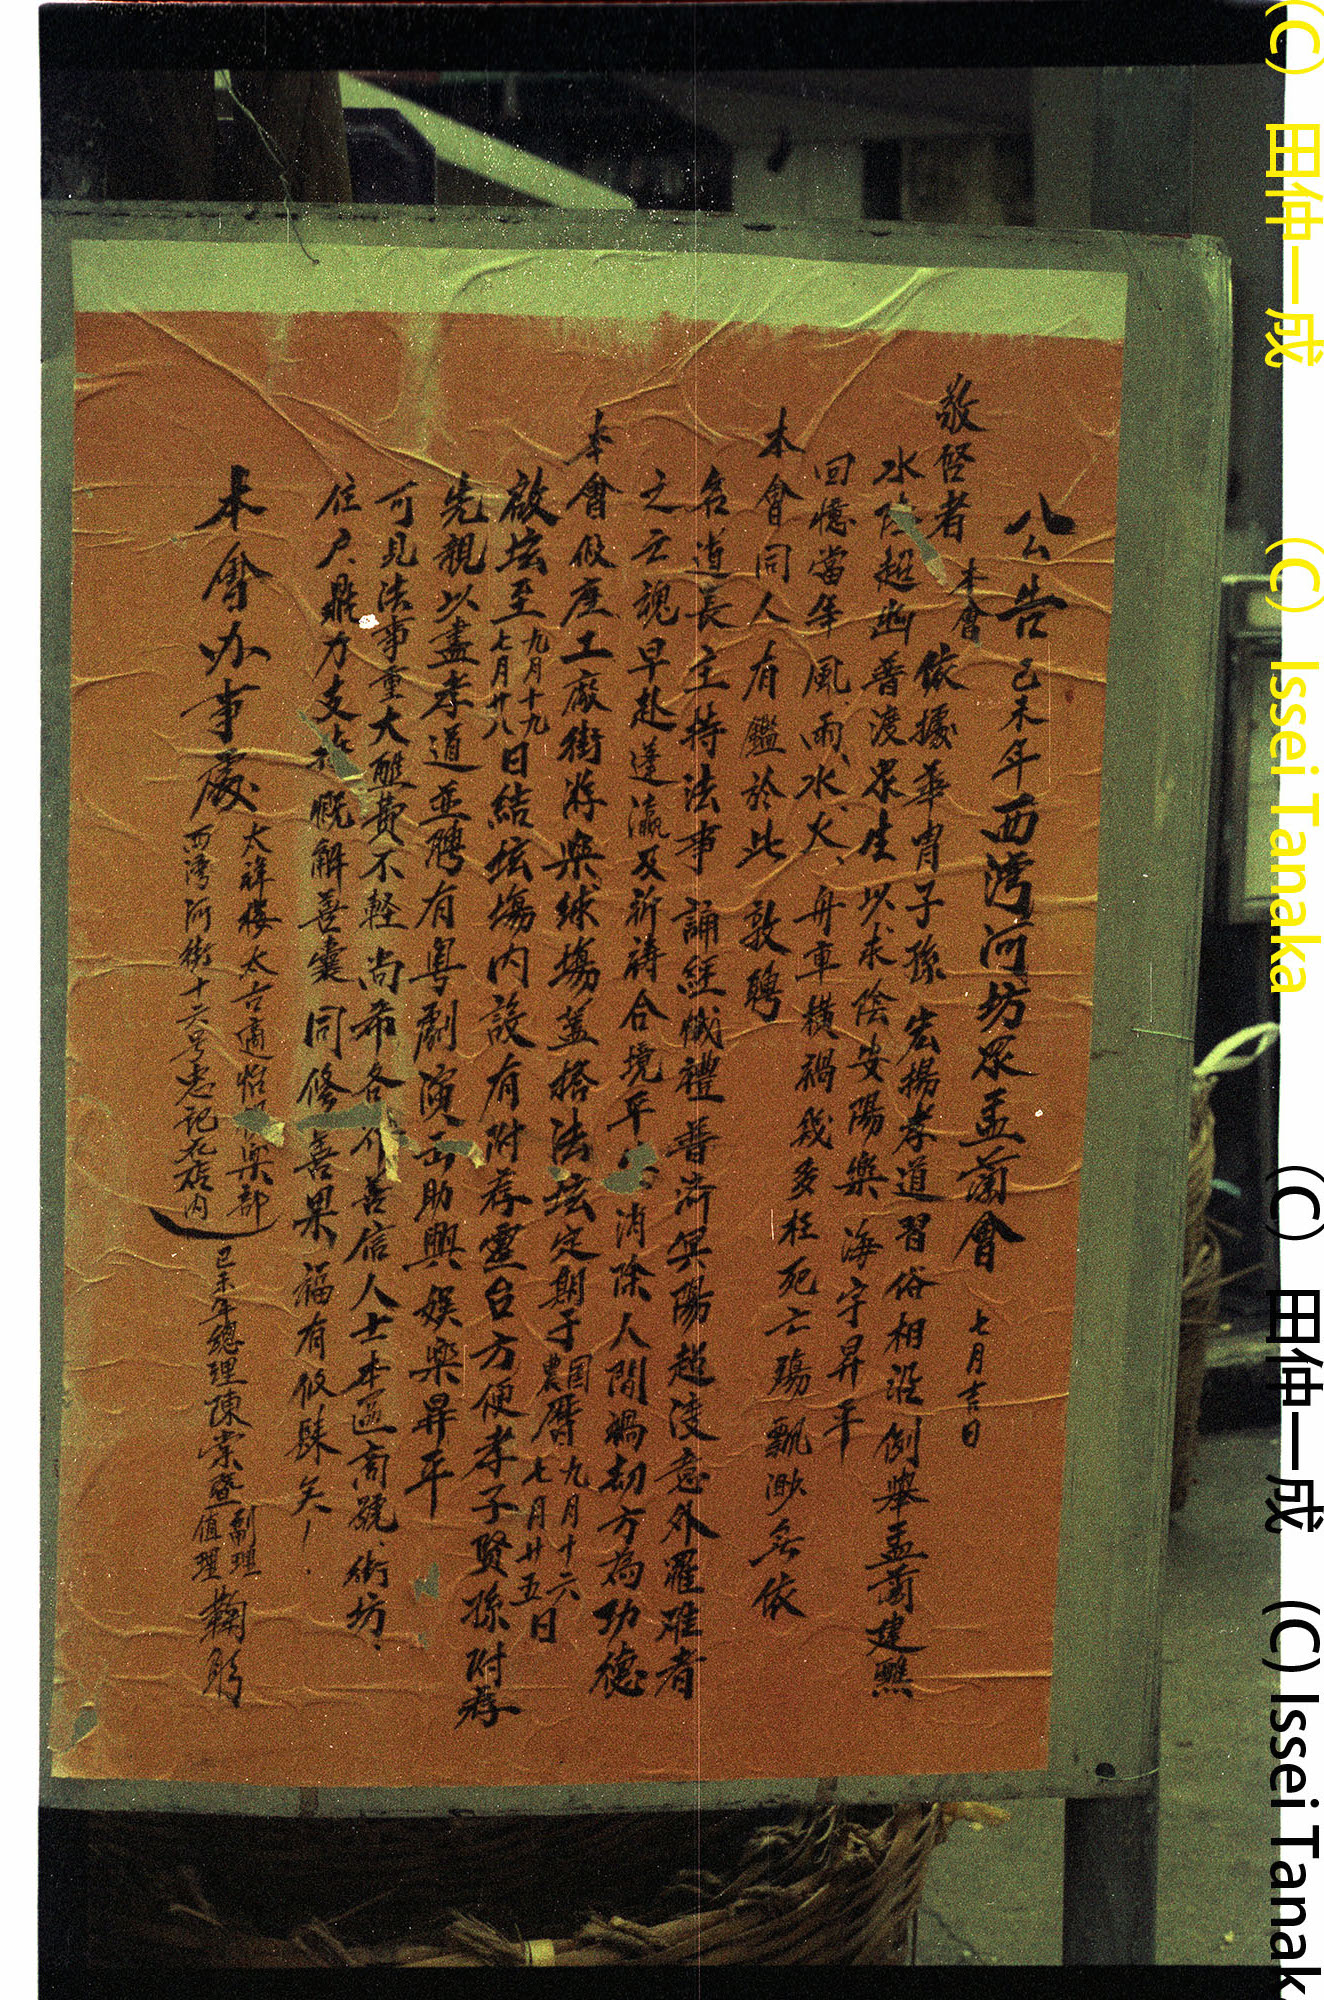 公告 己未年西灣河坊眾盂蘭會 七月吉日
敬啓者 本會 依據華胄子孫 宏揚孝道習俗相沿例舉盂蘭建醮
水陸超幽普渡眾生以求陰安陽樂 海宇昇平
回憶當年風、雨、水、火、舟車橫禍幾多枉死亡殤飄渺無依
本會同人有鑑於此 敦聘
名道長主持法事 誦經懺禮普濟冥陽超凌意外罹难者
之亡魂早赴蓬瀛及祈禱合境平 消除人間禍劫方為功德
本會假座工廠街游樂球塲蓋搭法坛定期于国農曆九月十六七月廿五日
啟坛至九月十九七月廿八日結坛塲内設有附荐靈台方便孝子賢孫附荐
先親以盡孝道並聘有粤劇演出助興 娛樂昇平
可見法事重大醮費不輕 尚希各介善信人士本區商號、街坊、
住户鼎力支持慨解善囊同修善果 福有攸歸矣！
本會办事處
太祥樓太古適怡 樂部
西灣河街十六号忠記花店内
己未年總理陳棠暨副理值理鞠躬
(C) 田仲一成 (C) Issei Tanaka
(C) 田仲一成 (C) Issei Tanak